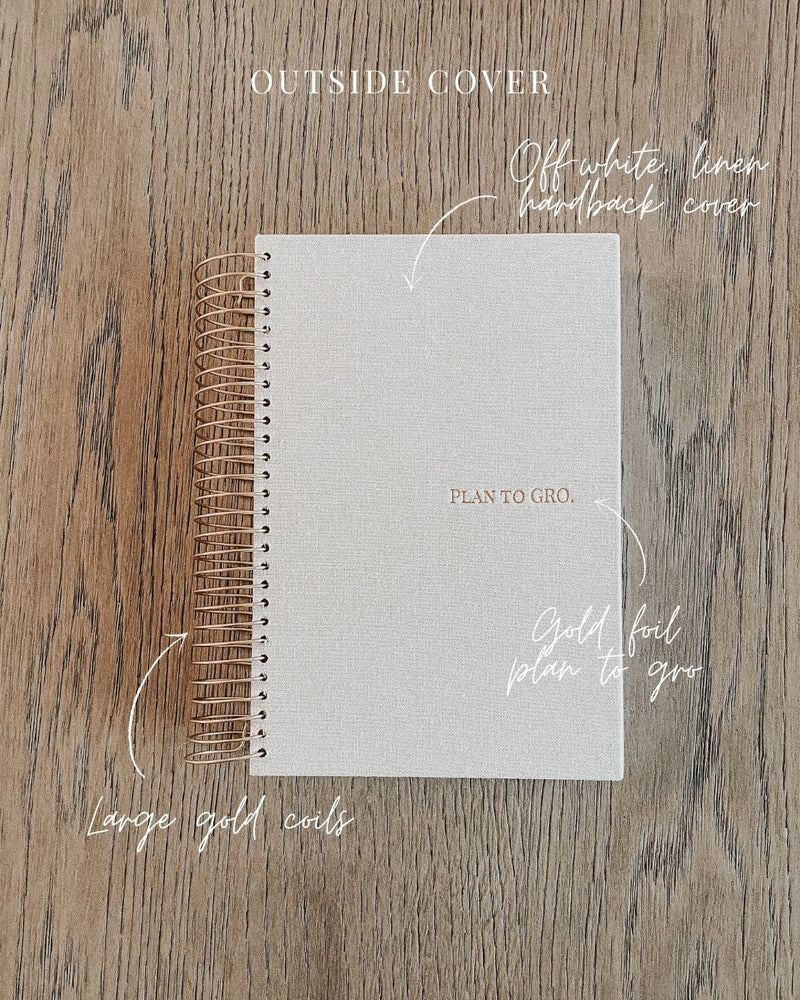 OUTSIDE COVER
Off-white, linen
hardback cover
PLAN TO GRO.
Gold foil
plan to gro
Large gold coils